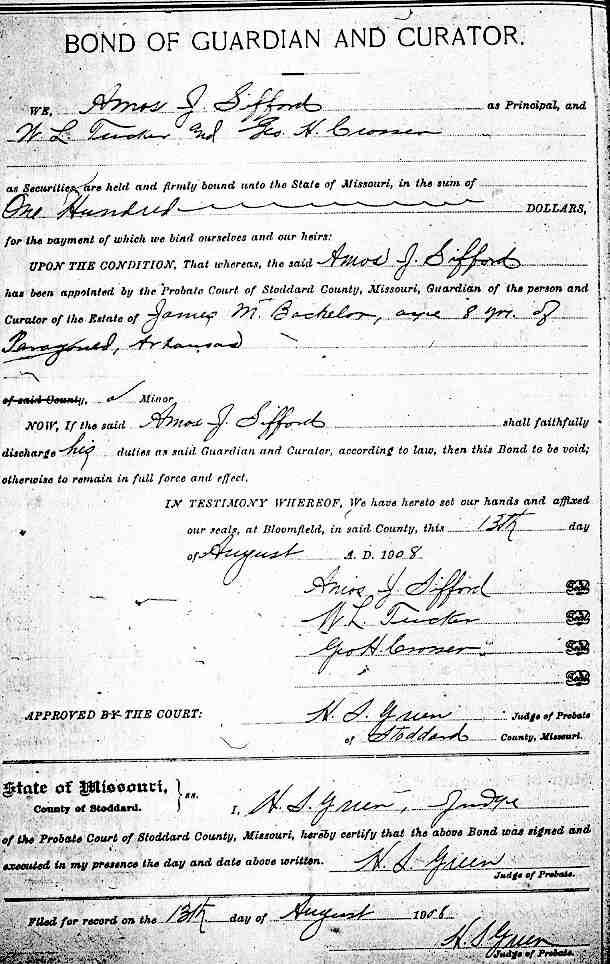 BOND OF GUARDIAN AND CURATOR.
WE, Amos J. Sifford as Principal, and
W L Tucker and Geo H. Crosser
as Securities, are held and firmly bound unto the State of Missouri, in the sum of
One Hundred DOLLARS,
for the payment of which we bind ourselves and our heirs:
UPON THE CONDITION, That whereas, the said Amos J. Sifford
has been appointed by the Probate Court of Stoddard County, Missouri, Guardian of the person and
Curator of the Estate of James M Bachelor, age 8 yrs. of
Paragould, Arkansas
of said County, a Minor
NOW, If the said Amos J. Sifford shall faithfully
discharge his duties as said Guardian and Curator, according to law, then this Bond to be void;
otherwise to remain in full force and effect.
IN TESTIMONY WHEREOF, We have hereto set our hands and affixed
our seals, at Bloomfield, in said County, this 13th day
of August A. D. 1908.
Amos J. Sifford Seal
W L Tucker Seal
Geo H. Crosser Seal
Seal
APPROVED BY THE COURT: H. S. Green Judge of Probate
of Stoddard County, Missouri.
State of Missouri, } ss.
County of Stoddard.
I, H. S. Green, Judge
of the Probate Court of Stoddard County, Missouri, hereby certify that the above Bond was signed and
executed in my presence the day and date above written. H. S. Green
Judge of Probate.
Filed for record on the 13th day of August 1908
H. S. Green
Judge of Probate.